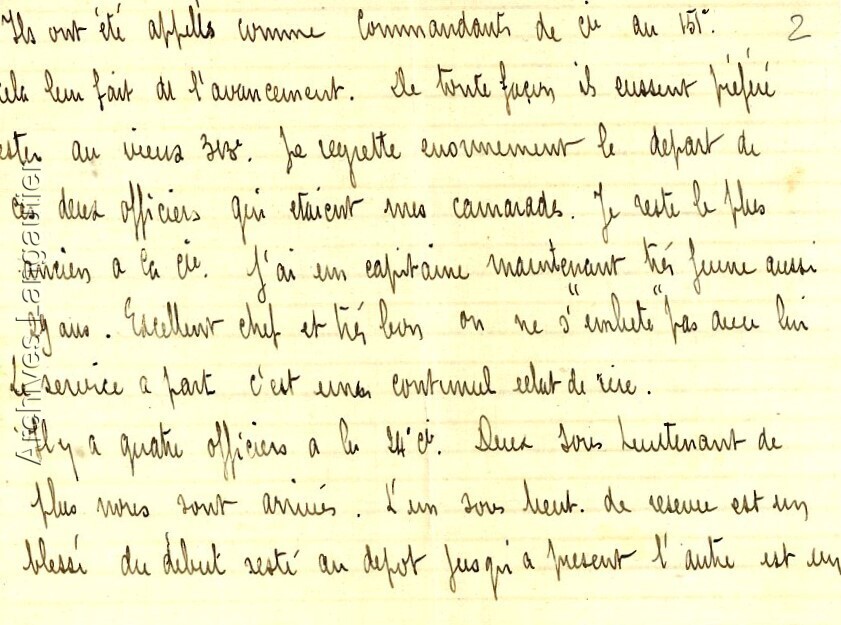 Ils ont été appellés comme Commandants de cie au 151e. 2
cela leur fait de l'avancement. De toute façon ils eussent préféré
ester au vieux Je regrette enormement le depart de
ces deux officiers qui etaient mes camarades. Je reste le plus
ancien a la Cie. J'ai un capitaine maintenant très jeune aussi
29 ans. Excellent chef et très bon on ne s'"embete" pas avec lui
Le service a part c'est un continuel eclat de rire.
Il y a quatre officiers a la 24e Cie. Deux sous Lieutenant de
plus nous sont arrivés. L'un sous lieut. de reserve est un
blessé du début resté au depot jusqu'a present l'autre est un
Archives Laragantier